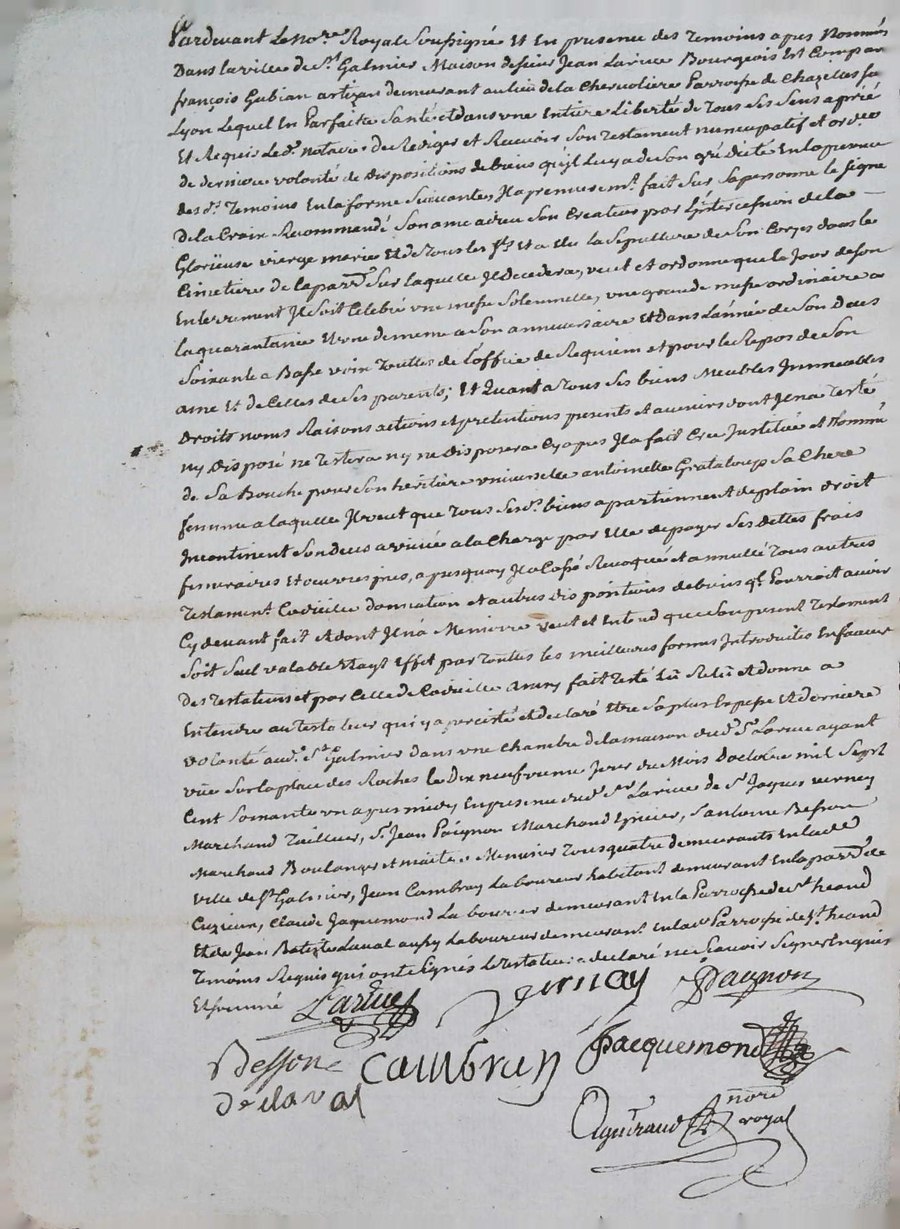 Pardevant Le no.re Royal Soussignée Et En presence des Temoins apres Nommés
Dans la ville de St Galmier Maison de sieur Jean Larive Bourgeois Est Compar
françois Gubian artizan demeurant au lieu de la Chervoliere Parroisse de Chazelles su
Lyon Lequel En Parfaite Santé et dans une Entiere Liberté de Tous Ses Sens a prié
Et Requis Led. Notaire de Rediger et Recevoir Son Testament nuncupatif et ord.ce
de derniere volonté de dispositions de biens qu'jl Luy a de Son gré dicté En la presence
des d. Temoins En la forme Suivante, Jl a premierem.t fait Sur Sa personne le Signe
De la Croix Recommendé Son ame a dieu Son Createur par L'jntercession de la
Glorieuse vierge marie Et de Tous les Sts Et a Elu la Sepulture de Son Corps dans le
Cimetiere de la parr.e Sur laquelle Jl decedera, veut et ordonne que le Jour de Son
Enterrement Jl Soit Celebré une messe Solennelle, une grande messe ordinaire a
la quarantaine Et une de meme a Son anniversaire Et dans L'année de Son Deces
Soixante a Basse voix Toutes de L'office de Requiem et pour le Repos de Son
ame Et de Celles de Ses parents; Et Quant a Tous Ses biens Meubles Jmmeubles
Droits noms Raisons actions et pretentions presents et avenirs dont Jl n'a Testé
ny disposé ne Testera ny ne disposera Cy apres Jl a fait Cree Jnstitué et Nommé
de Sa Bouche pour Son heritiere universelle antoinette Grataloup Sa Chere
femme a laquelle Jl veut que Tous Ses d. biens apartiennent de plain droit
Jncontinent Son deces arrivée a la Charge par Elle de payer Ses dettes frais
funeraires Et oeuvres pies, apres quoy Jl a Cassé Revoqué et annullé Tous autres
Testament Codicille donnation et autres dispositions de biens q'l Pourroit avoir
Cy devant fait et dont Jl n'a Memoire veut et Entend que Son present Testament
Soit Seul valable Et aye Effet par Toutes les meilleures formes Jntroduites En faveur
Des Testations et par Celle de Codicille ainsy fait Testé Lû Relû et donné a
Entendre au Testateur qui y a percisté et declaré Etre Sa plus Expresse Et derniere
volonté aud. St Galmier dans une Chambre de la maison dud. Sr Larive ayant
vüe Sur la place des Roches Le Dix neufvieme Jour du Mois D'octobre mil Sept
Cent Soixante un apres midy En presence dud. Sr Larive de Sr Jacques verney
Marchand Tailleur, Sr Jean Paignon Marchand Epicier, Sr antoine Besson
Marchand Boulanger et maitre Menuisier Tous quatre demeurants En lad.
ville de St Galmier, Jean Cambray Laboureur habitant demeurant En la parr.e de
Cuzieu, Claude Jaquemond Laboureur demeurant En la Parroisse de St heand
Et de Jean Batiste Laval aussy Laboureur demeurant En lad. Parroisse de St heand
Temoins Requis qui ont Signés Le Testateur a declaré ne Scavoir Signer Enquis
Et sommé Larive vernay JPaignon
Besson Cambrey Jacquemond
De laval
Aguiraud no.re royal